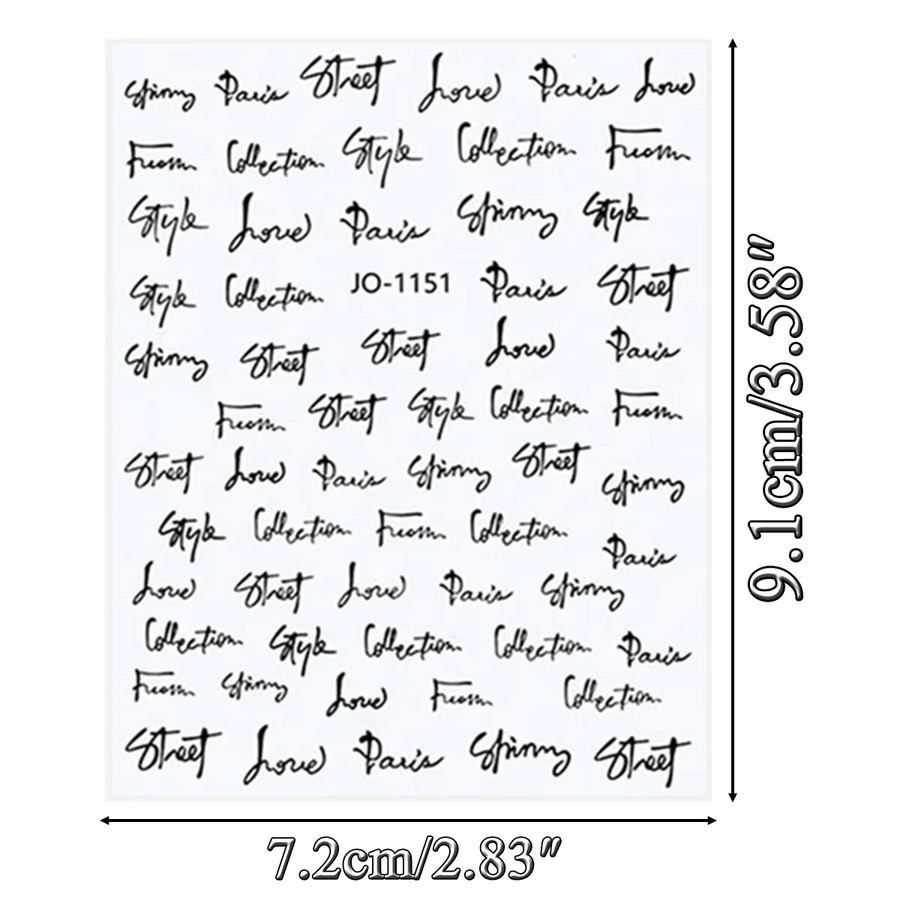 Paris Street Love Paris Love
From Collection Style Collection From
Style Love Paris Style
Style Collection JO-1151 Paris Street
Street Street Love Paris
From Street Style Collection From
Street Love Paris Street
Style Collection From Collection
Paris
Love Street Love Paris
Collection Style Collection Collection Paris
From Love From Collection
Street Love Paris Street
9.1cm/3.58"
7.2cm/2.83"